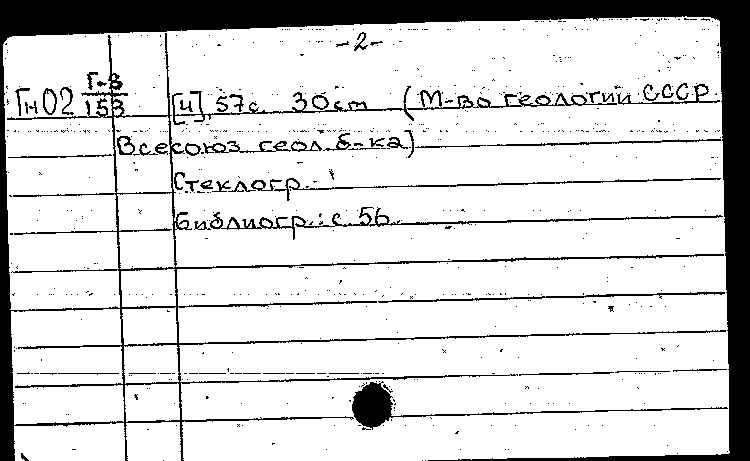 -2-
Г-8
Гн02 153 [4], 57с. 30см (М-во геологии СССР.
Всесоюз геол. б-ка)
Стеклогр.
Библиогр.: с. 56.